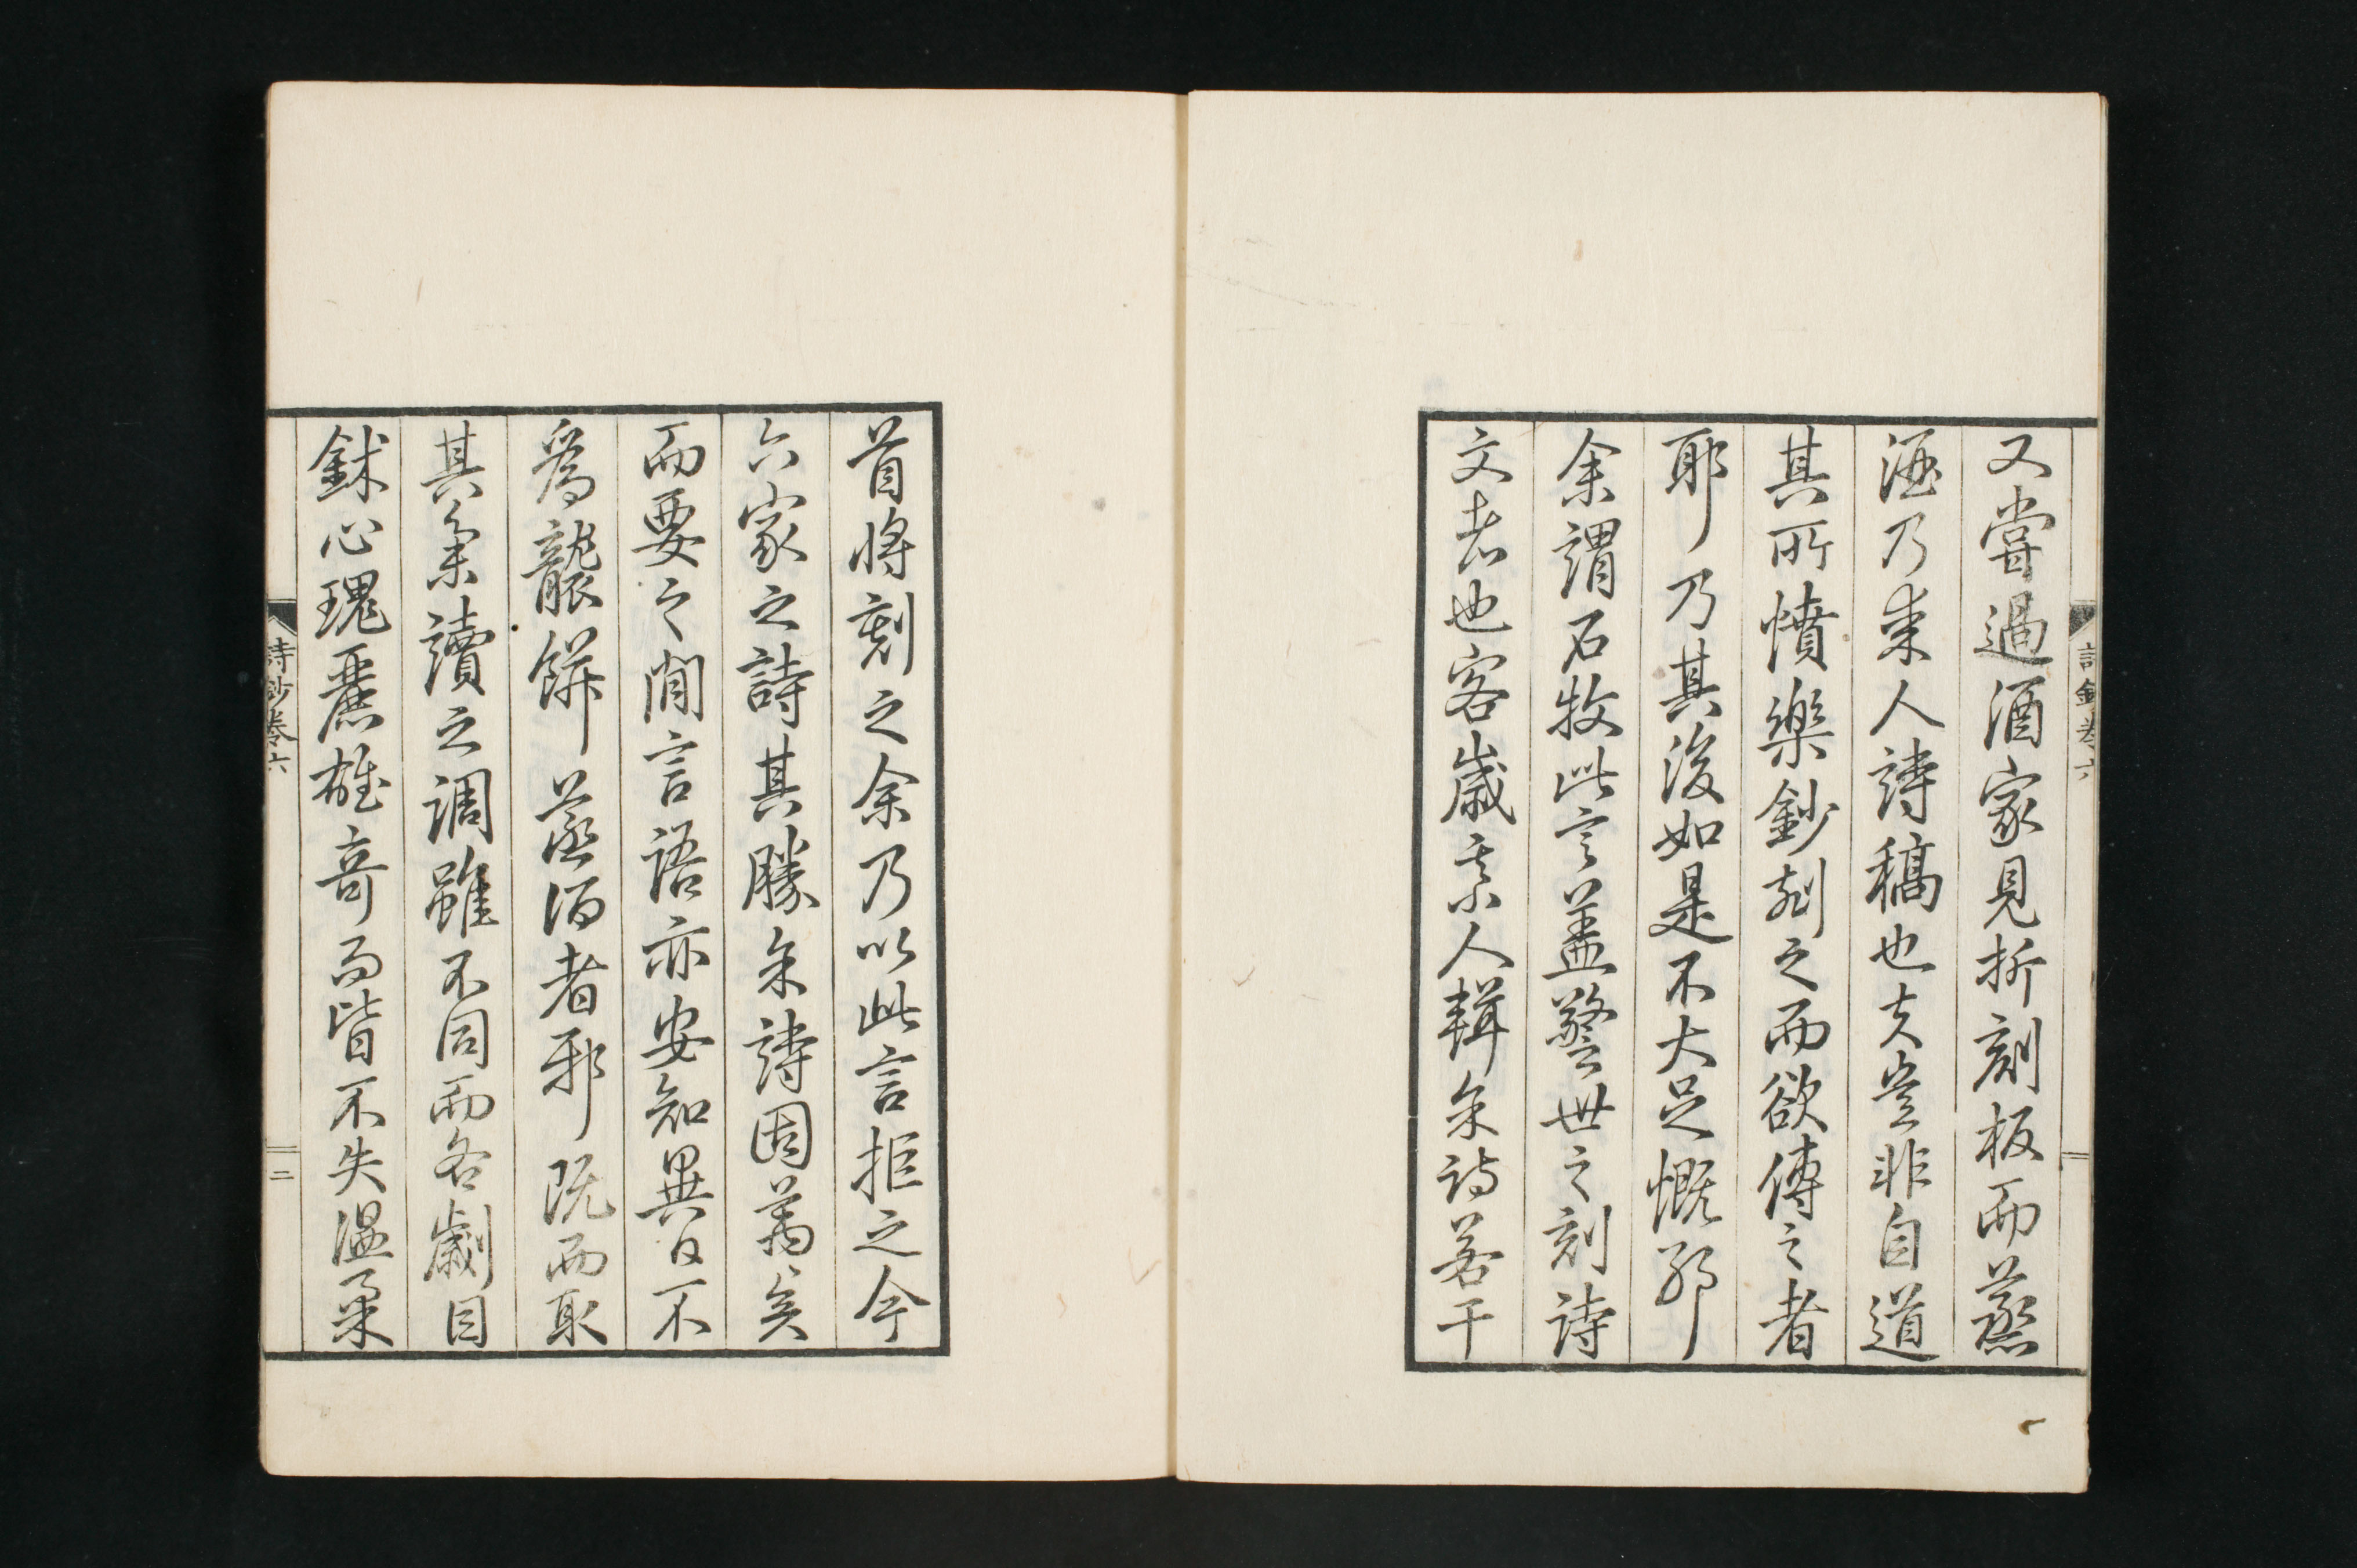 又嘗過酒家見折刻板而蒸
酒乃素人詩稿也夫豈非自道
其所憤樂鈔刻之而欲傳之者
耶乃其後如是不大足慨耶
余謂石牧此言蓋警世之刻詩
文者也客歲素人輯余詩若干
首將刻之余乃以此言拒之今
六家之詩其勝余詩固萬矣
而要之間言語亦安知異日不
為龍餅蒸酒者邪既而取
其集讀之調雖不同而各劌目
鉥心瑰麗雄奇而皆不失溫柔
詩鈔卷六
二
詩鈔卷六